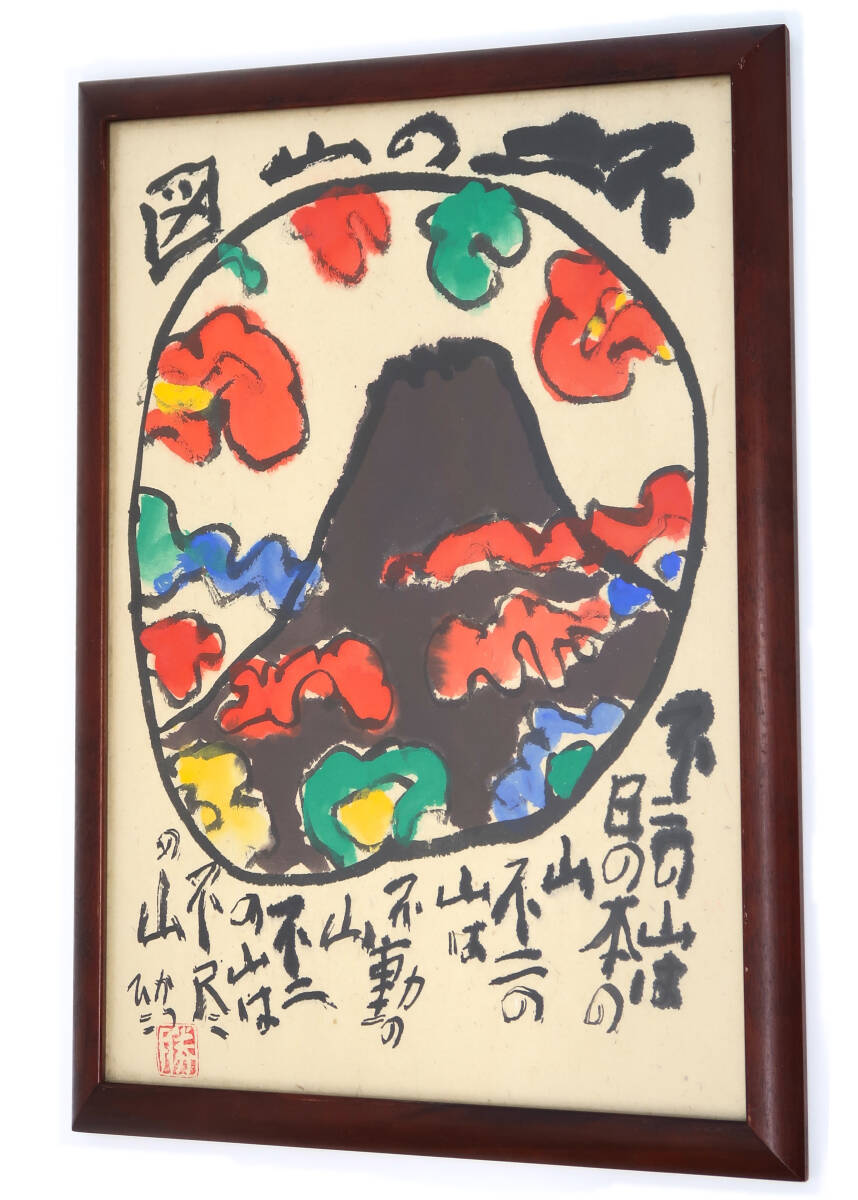 不二の山図
不二の山は
日の本の
山
不二の
山は
不動の
山
不二
の山は
不尽
の山